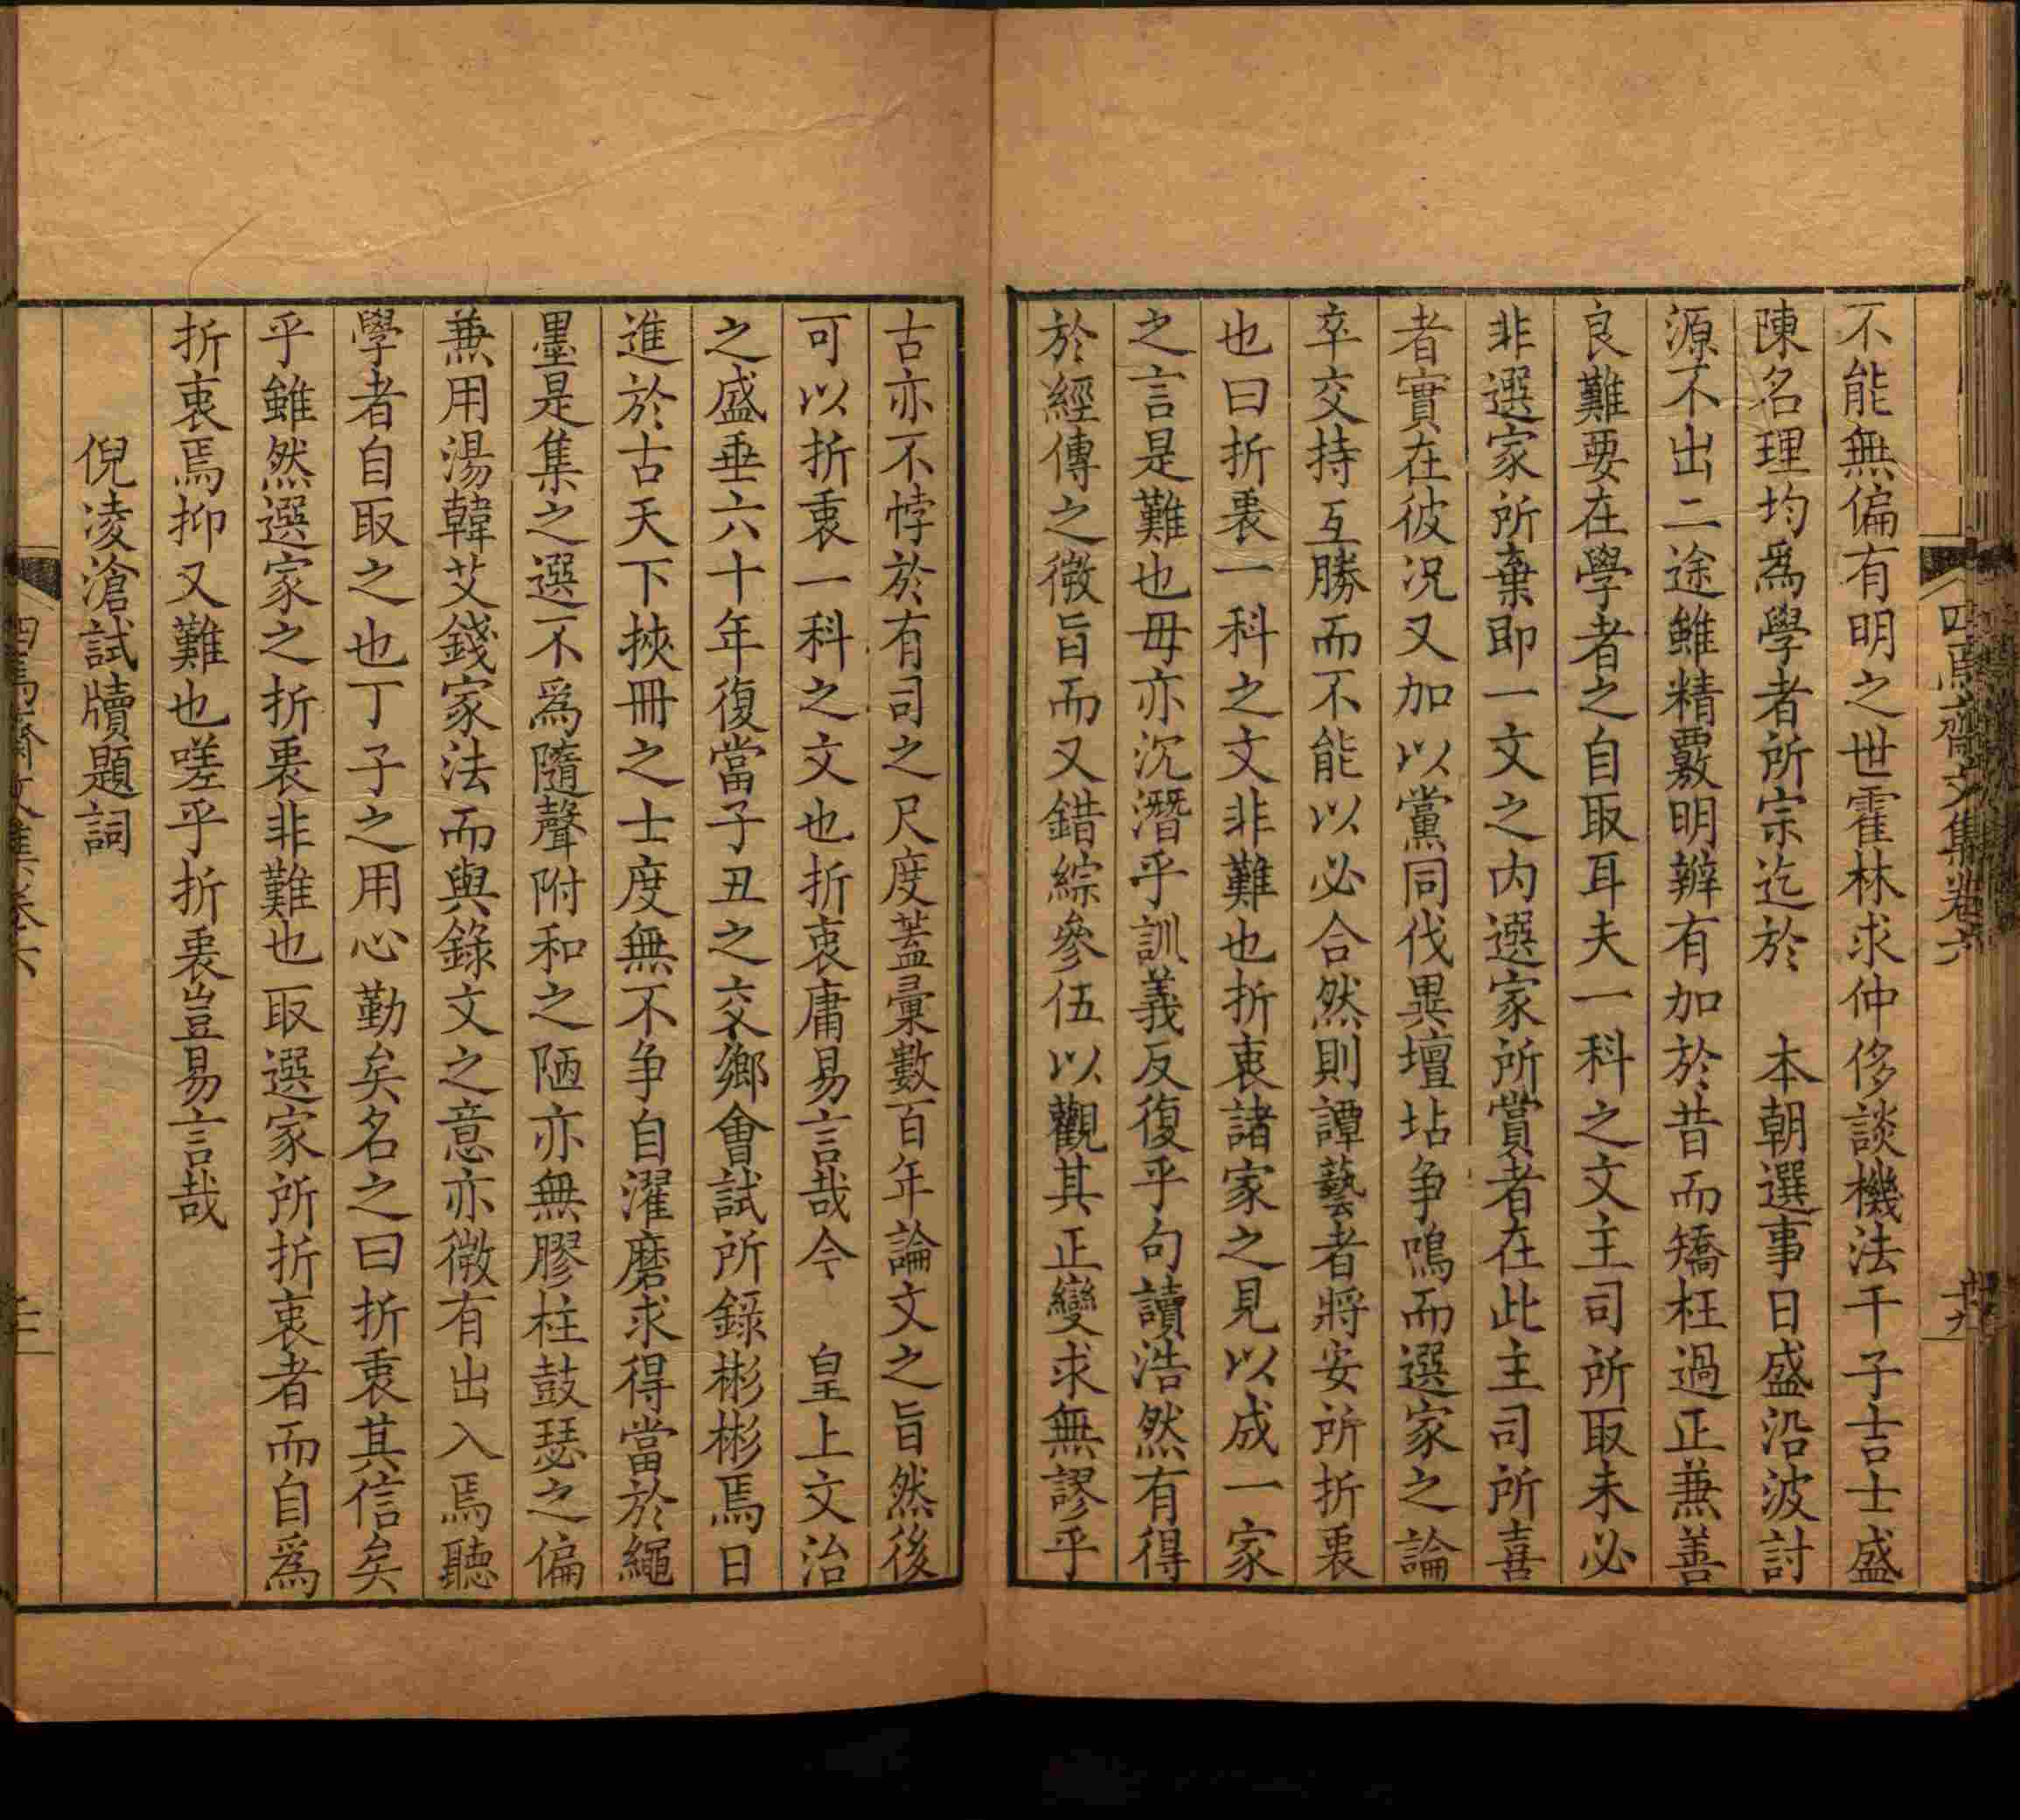 不能無偏有明之世霍林求仲侈談機法千子吉士盛
陳名理均為學者所宗迄於　本朝選事日盛沿波討
源不出二途雖精覈明辨有加於昔而矯枉過正兼善
良難要在學者之自取耳夫一科之文主司所取未必
非選家所棄即一文之內選家所賞者在此主司所喜
者實在彼況又加以黨同伐異壇坫爭鳴而選家之論
卒交持互勝而不能以必合然則譚藝者將安所折衷
也曰折衷一科之文非難也折衷諸家之見以成一家
之言是難也毋亦沉潛乎訓義反復乎句讀浩然有得
於經傳之微旨而又錯綜參伍以觀其正變求無謬乎
古亦不悖於有司之尺度葢彚數百年論文之旨然後
可以折衷一科之文也折衷庸易言哉今　皇上文治
之盛垂六十年復當子丑之交鄉會試所錄彬彬焉日
進於古天下挾冊之士度無不爭自濯磨求得當於繩
墨是集之選不為隨聲附和之陋亦無膠柱鼓瑟之偏
兼用湯韓艾錢家法而與錄文之意亦微有出入焉聽
學者自取之也丁子之用心勤矣名之曰折衷其信矣
乎雖然選家之折衷非難也取選家所折衷者而自為
折衷焉抑又難也嗟乎折衷豈易言哉
倪凌滄試牘題詞
四焉齋文集卷六
十九
四焉齋文集卷六